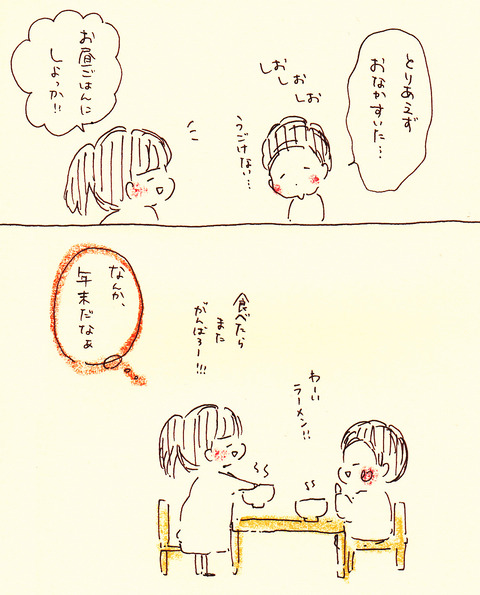 とりあえず
おなかすいた…
しお
しお
しお
うごけない…
お昼ごはんに
しよっか!!
わーい
ラーメン!!
食べたら
また
がんばろー!!!
なんか、
年末だなぁ